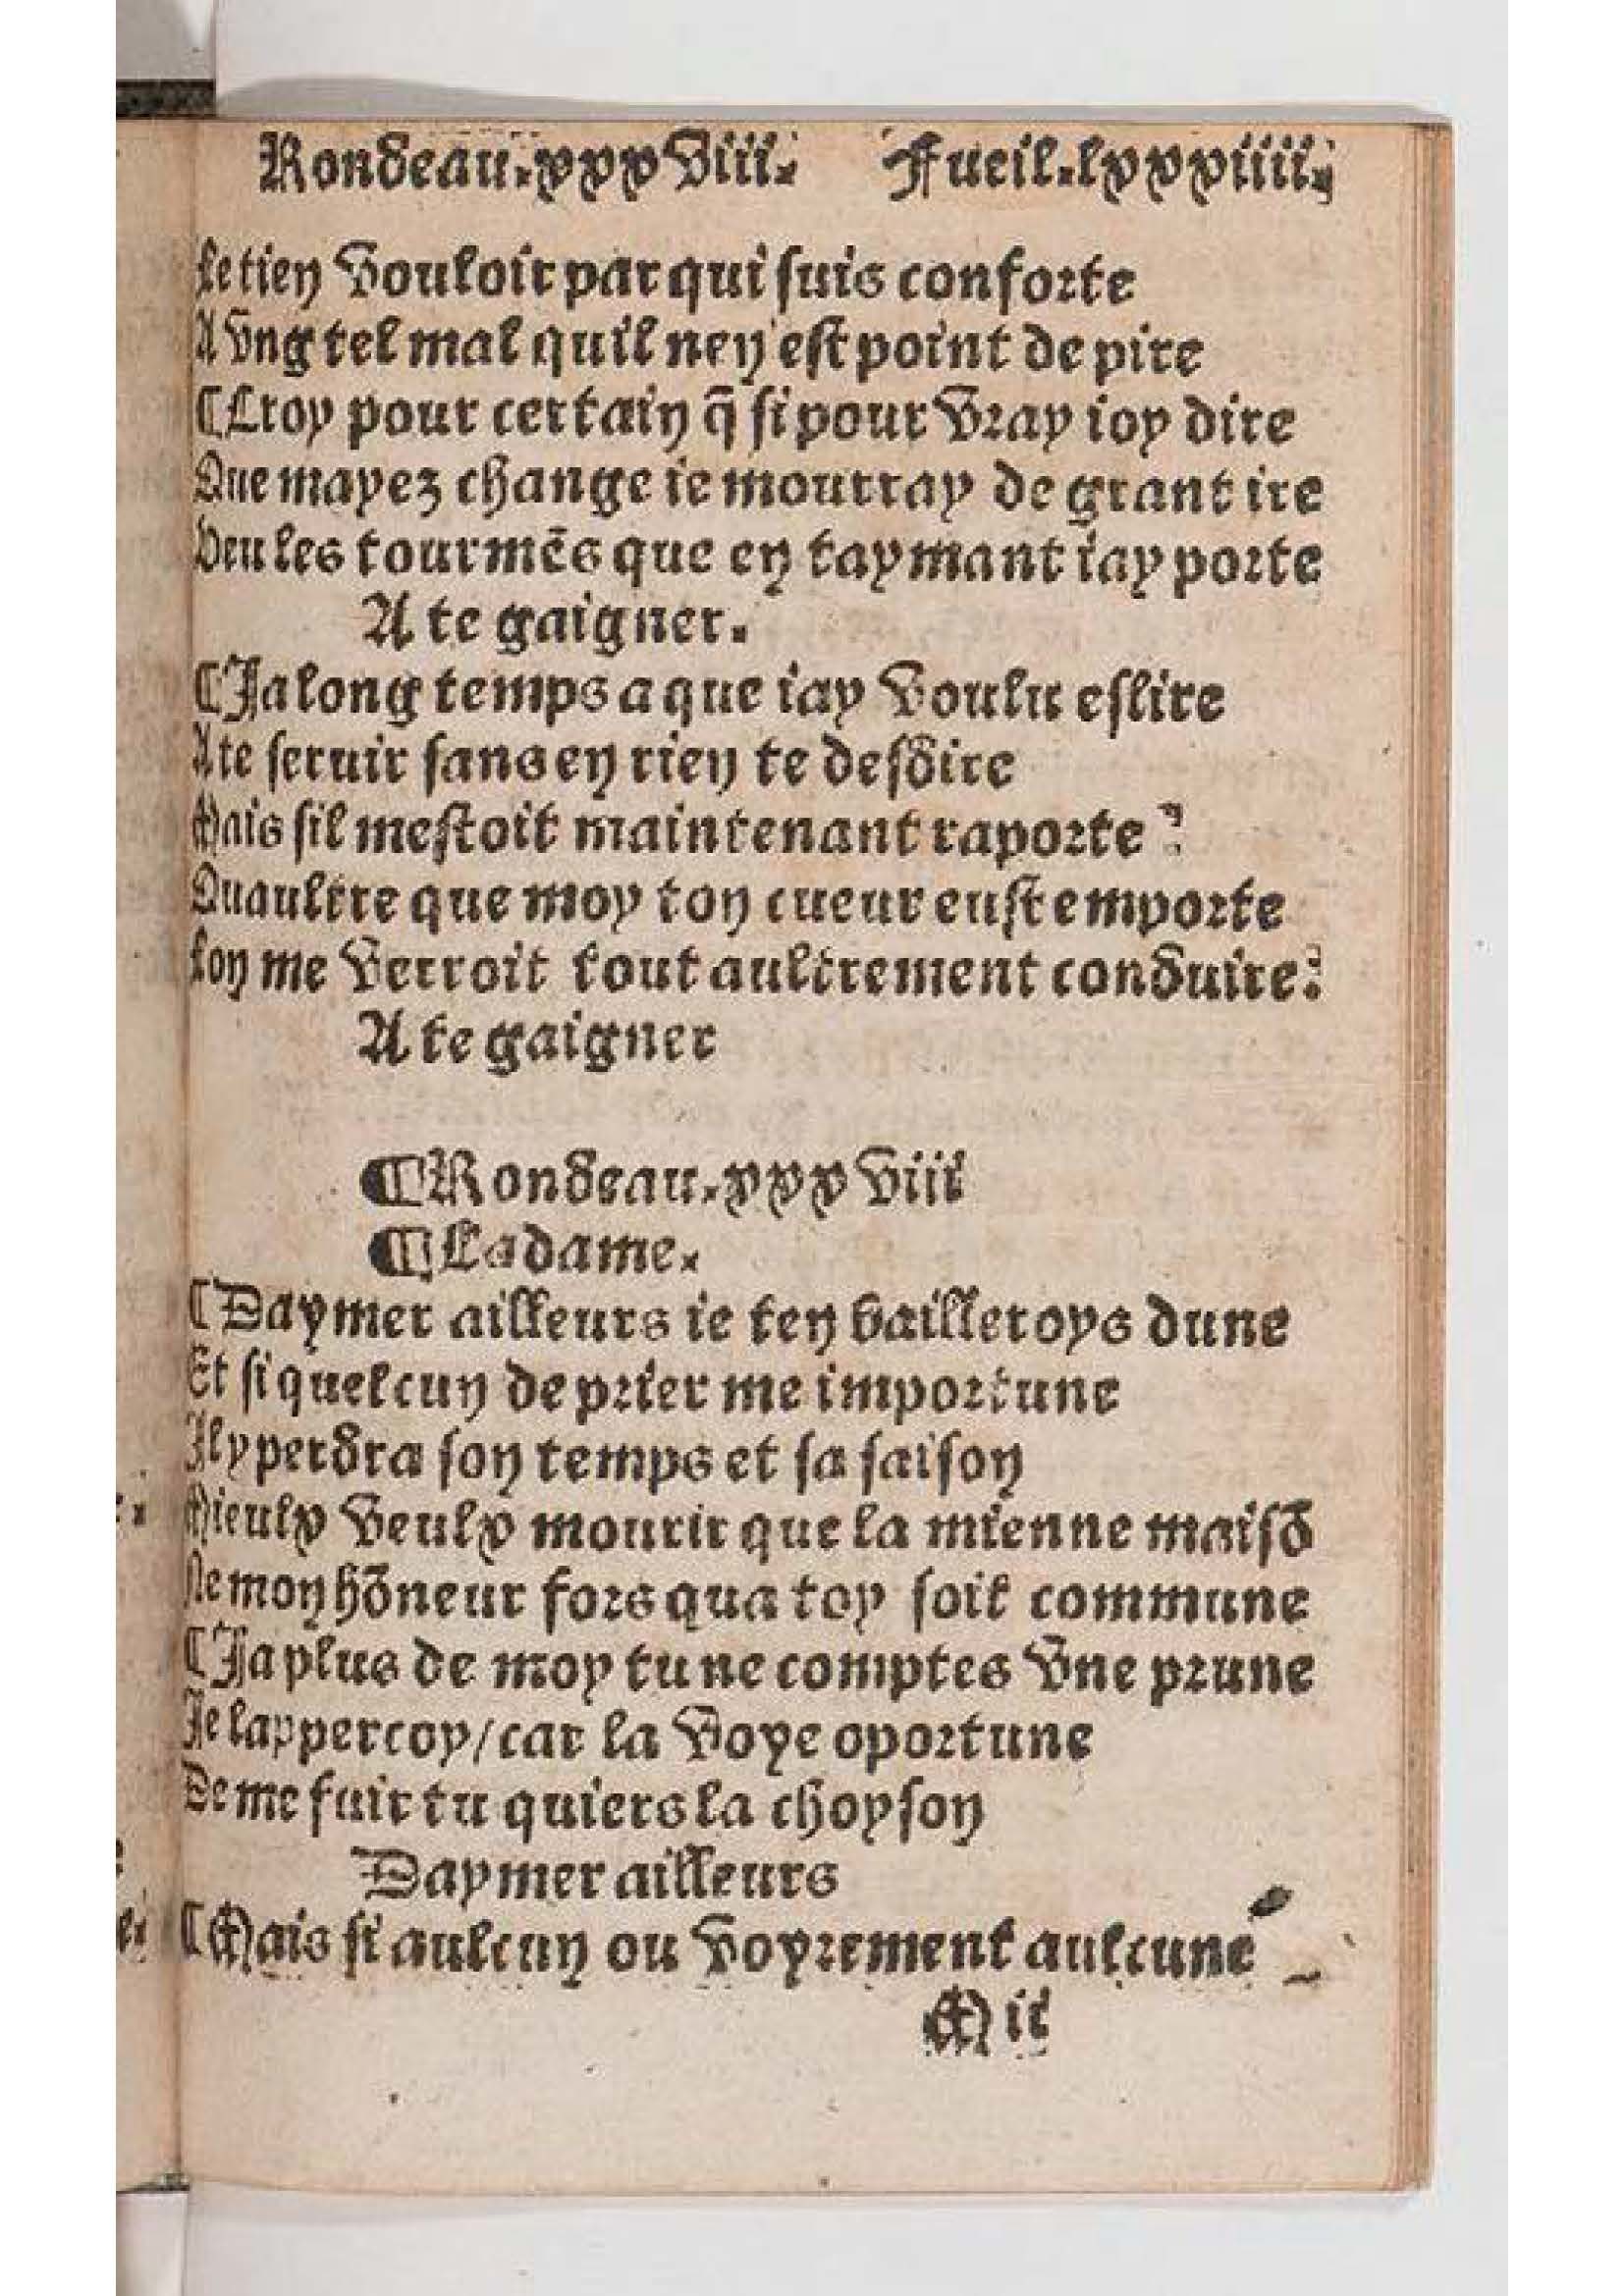 Rondeau.xxxviii. Fueil.lxxxiiii.
Le tien vouloir par qui suis conforte
A vng tel mal quil nen est point de pire
¶Croy pour certain q̄ si pour vray ioy dire
Que mayez change ie mourray de grant ire
Veu les tourmēs que en taymant iay porte
A te gaigner.
¶Ja long temps a que iay voulu eslire
A te seruir sans en rien te desdire
Mais sil mestoit maintenant raporte:
Quaultre que moy ton cueur eust emporte
Lon me verroit tout aultrement conduire:
A te gaigner
¶Rondeau.xxxviii
¶La dame.
¶Daymer ailleurs ie ten bailleroys dune
Et si quelcun de prier me importune
Il y perdra son temps et sa saison
Mieulx veulx mourir que la mienne maisō
Ne mon hōneur fors qua toy soit commune
¶Ja plus de moy tu ne comptes vne prune
Je lappercoy/car la voye oportune
De me fuir tu quiers la choyson
Daymer ailleurs
¶Mais si aulcun ou voyrement aulcune
M ii